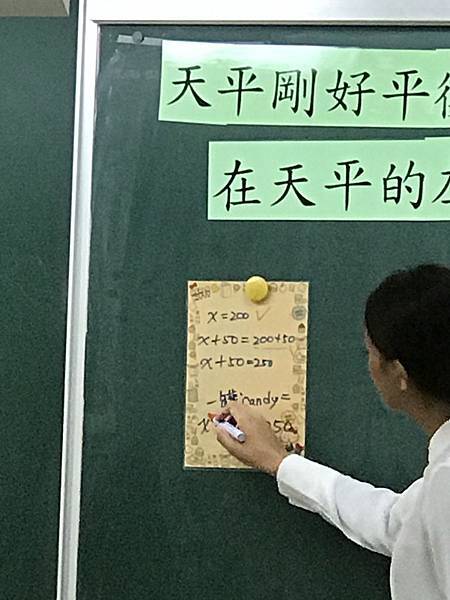 天平剛好平
在天平的
x=200
x+50=200+50
x+50=250
candy=
x